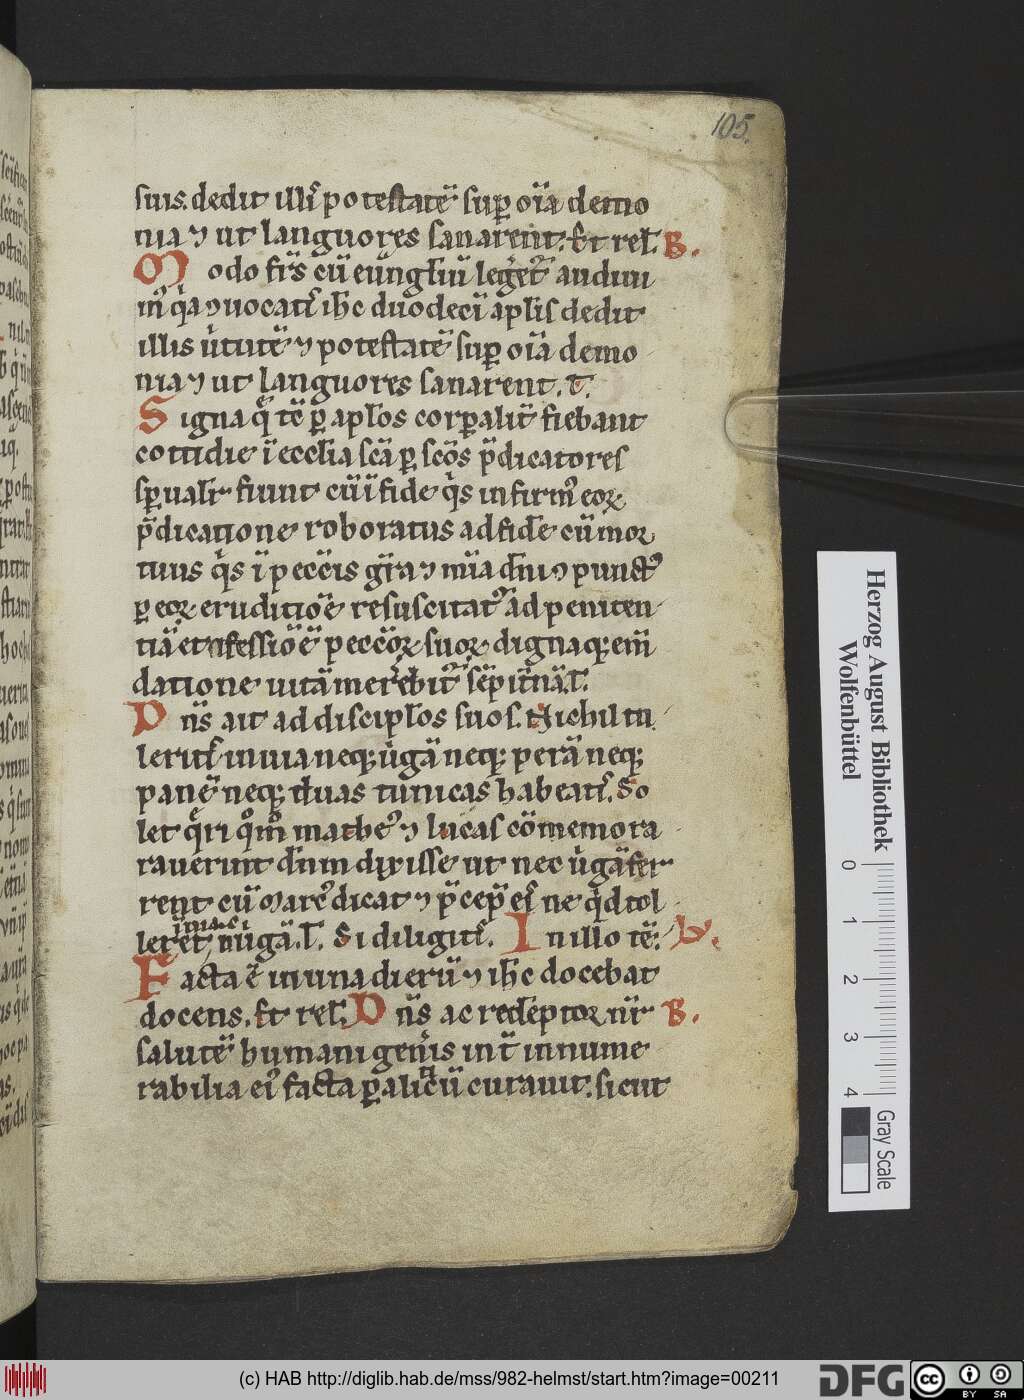 105.
suis. dedit illis potestatē sup̄ om̄ia demo
nia ⁊ ut languores sanarent. Et rel̄. B.
Modo fr̄s cū euūgl̄iū leġet᷑ audiui
m᷒ q̄a ⁊uocatis ih̄c duodecī ap̄lis dedit
illis u̇tutē ⁊ potestatē sup̄ om̄ia demo
nia ⁊ ut languores sanarent. T.
Signa q̄ tē ꝑ apl̄os corꝑalit̄ fiebant
cottidie ī eccl̄ia scā ꝑ scōs p̄dicatores
sp̄ualit̄ fiunt cū īfide q̇s infirm᷒ eoꝝ
p̄dicatione roboratus ad fidē cū mor
tuus q̇s ī pecc̄is gr̄a ⁊ mīa dn̄i ⁊punct᷒
ꝑ eoꝝ eruditiōē resuscitat᷑ ad peniten
tiā et ⁊fessiōē peccōꝝ suoꝝ dignaqꝫ em̄
datione uitā mereb̄it᷑ sēpit̄nā. T.
Dn̄s ait ad discipl̄os suos. Nichil tu
lerit̄ in uia neqꝫ u̇gā neqꝫ perā neqꝫ
panē neqꝫ duas tunicas habeatis. So
let q̄ri q̊m̊ mathe᷒ ⁊ lucas cōmemora
rauerunt dn̄m dixisse ut nec u̇gā fer
rent cū marc᷒ dicat ⁊ p̄cep̄ eis ne q̇d tol
leret,
nı̇ u̇gā. T. Si diligitis. In illo tē. lv.
Facta ē in una dierū ⁊ ih̄c docebat
docens. Et rel̄. Dn̄s ac redēptor nr̄ B.
salutē humani gen̄is int̄ innume
rabilia ei᷒ facta paraliticū curauit. sicut
Herzog August Bibliothek
Wolfenbüttel
0 1 2 3 4
Gray Scale
(c) HAB http://diglib.hab.de/mss/982-helmst/start.htm?image=00211
DFG
cc BY SA